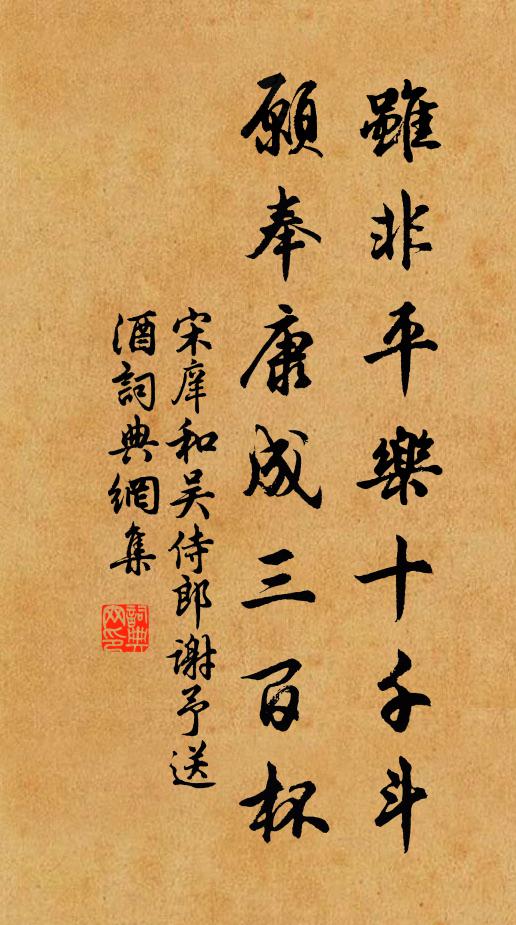 雖非平樂十千斗
願奉康成三百杯
宋庠和吴侍郎謝予送
酒詞典網集
詞典
网印